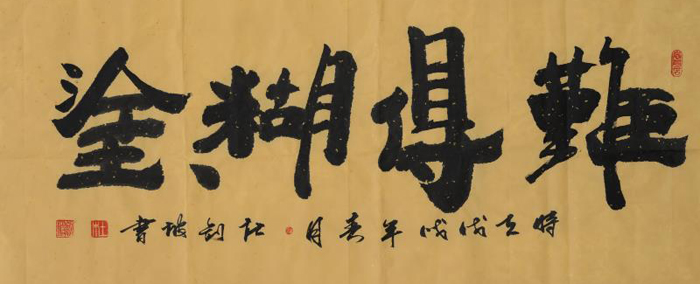 難得糊塗
時在戊戌年春月杜剑坡書